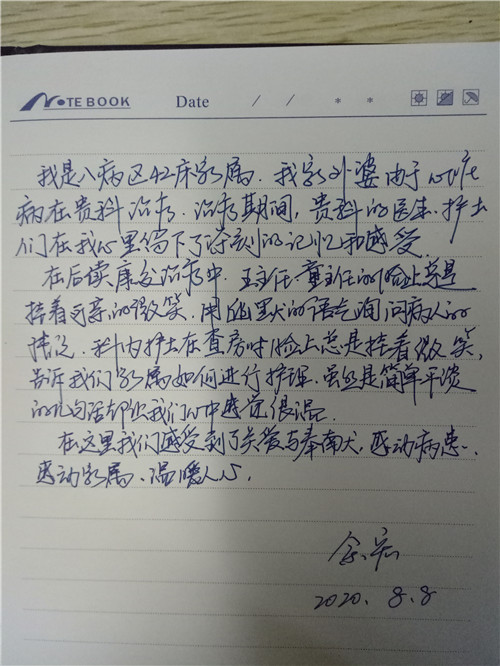 NOTEBOOK Date / / * *
我是八病区42床家属. 我家外婆由于心脏
病在贵科治疗. 治疗期间, 贵科的医生、护士
们在我心里留下了深刻的记忆和感受.
在后续康复治疗中. 王主任、童主任的脸上总是
挂着可亲的微笑. 用幽默的语气询问病人的
情况. 科内护士在查房时脸上总是挂着微笑,
告诉我们家属如何进行护理. 虽然是简单平淡
的几句话却让我们心中感觉很温.
在这里我们感受到了关爱与奉献, 感动病患、
感动家属、温暖人心.
2020. 8. 8